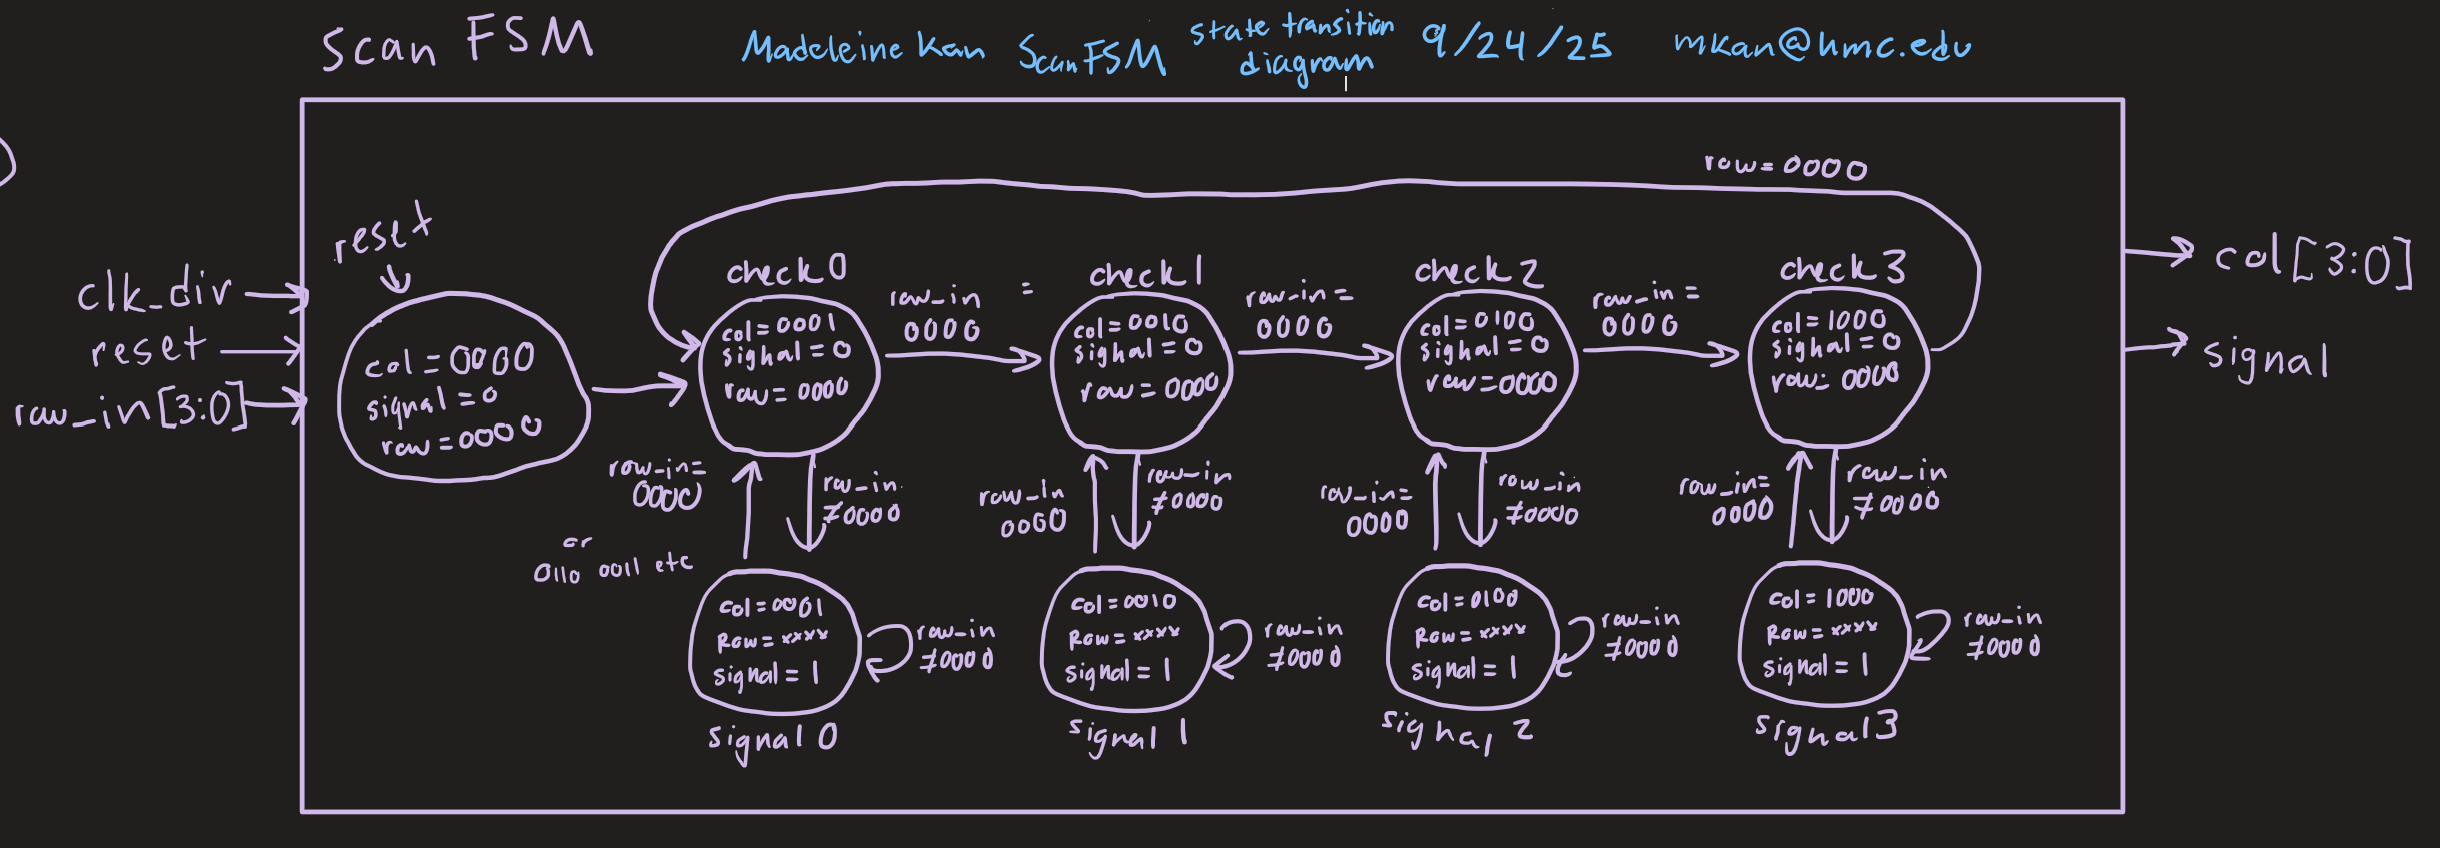 Scan FSM
Madeleine Kan
Scan FSM
state transition
diagram
9/24/25
mkan@hmc.edu
row=0000
reset
clk_div
reset
row_in[3:0]
col[3:0]
signal
col=0000
signal=0
row=0000
check0
col=0001
signal=0
row=0000
row_in =
0000
check1
col=0010
signal=0
row=0000
row_in=
0000
check2
col=0100
signal=0
row=0000
row_in=
0000
check3
col=1000
signal=0
row= 0000
row_in=
0000
or
0110 0011 etc
row_in
≠0000
row_in
0000
row_in
≠0000
row_in=
0000
row_in
≠0000
row_in=
0000
row_in
≠0000
col=0001
Row=xxxx
signal=1
row_in
≠0000
signal0
col=0010
Row=xxxx
signal=1
row_in
≠0000
signal1
col=0100
Row=xxxx
signal=1
row_in
≠0000
signal2
col=1000
Row=xxxx
signal=1
row_in
≠0000
signal3